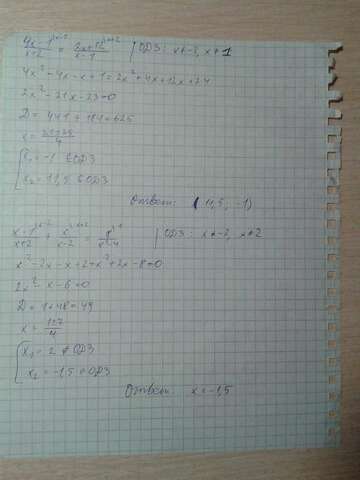 4x-1/x+2 = 2x+12/x-1 | ОДЗ: x≠-2, x≠1
4x²-4x-x+1=2x²+4x+12x+24
2x²-21x-23=0
D=441+184=625
x=21±25/4
x₁=-1 ∈ОДЗ
x₂=11,5 ∈ОДЗ
Ответ: (11,5; -1)
x-1/x+2 + x/x-2 = 8/x²-4 | ОДЗ: x≠-2, x≠2
x²-2x-x+2+x²+2x-8=0
2x²-x-6=0
D=1+48=49
x=1±7/4
x₁=2 ∉ОДЗ
x₂=-1,5 ∈ОДЗ
Ответ: x=-1,5